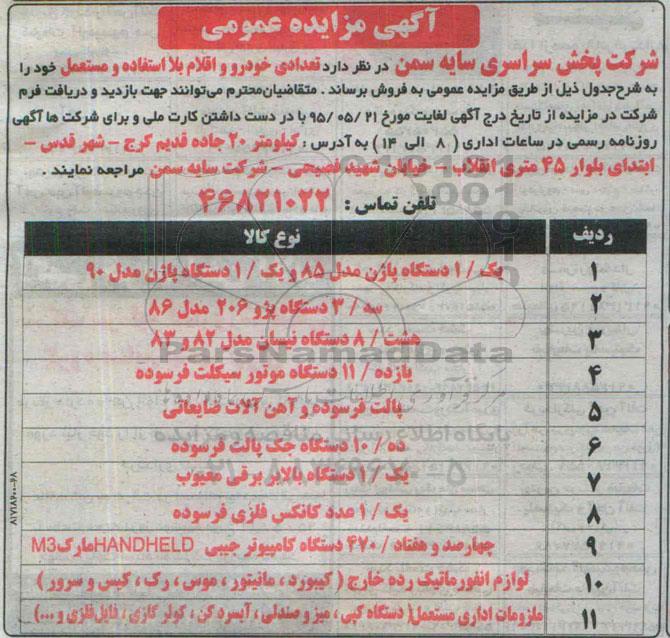 آگهی مزایده عمومی
شرکت پخش سراسری سایه سمن در نظر دارد تعدادی خودرو و اقلام بلا استفاده و مستعمل خود را
به شرح جدول ذیل از طریق مزایده عمومی به فروش برساند . متقاضیان محترم می‌توانند جهت بازدید و دریافت فرم
شرکت در مزایده از تاریخ درج آگهی لغایت مورخ ۲۱ /۰۵ /۹۵ با در دست داشتن کارت ملی و برای شرکت ها آگهی
روزنامه رسمی در ساعات اداری ( ۸ الی ۱۴ ) به آدرس : کیلومتر ۲۰ جاده قدیم کرج – شهر قدس –
ابتدای بلوار ۴۵ متری انقلاب – خیابان شهید فصیحی – شرکت سایه سمن مراجعه نمایند .
تلفن تماس : ۴۶۸۲۱۰۲۲
ردیف نوع کالا
۱ یک / ۱ دستگاه پاژن مدل ۸۵ و یک / ۱ دستگاه پاژن مدل ۹۰
۲ سه / ۳ دستگاه پژو ۲۰۶ مدل ۸۶
۳ هشت / ۸ دستگاه نیسان مدل ۸۲ و ۸۳
۴ یازده / ۱۱ دستگاه موتور سیکلت فرسوده
۵ پالت فرسوده و آهن آلات ضایعاتی
۶ ده / ۱۰ دستگاه جک پالت فرسوده
۷ یک / ۱ دستگاه بالابر برقی معیوب
۸ یک / ۱ عدد کانکس فلزی فرسوده
۹ چهارصد و هفتاد / ۴۷۰ دستگاه کامپیوتر جیبی HANDHELD مارک M3
۱۰ لوازم انفورماتیک رده خارج ( کیبورد ، مانیتور ، موس ، رک ، کیس و سرور )
۱۱ ملزومات اداری مستعمل ( دستگاه کپی ، میز و صندلی ، آبسردکن ، کولر گازی ، فایل فلزی و ...)
ParsNamadData